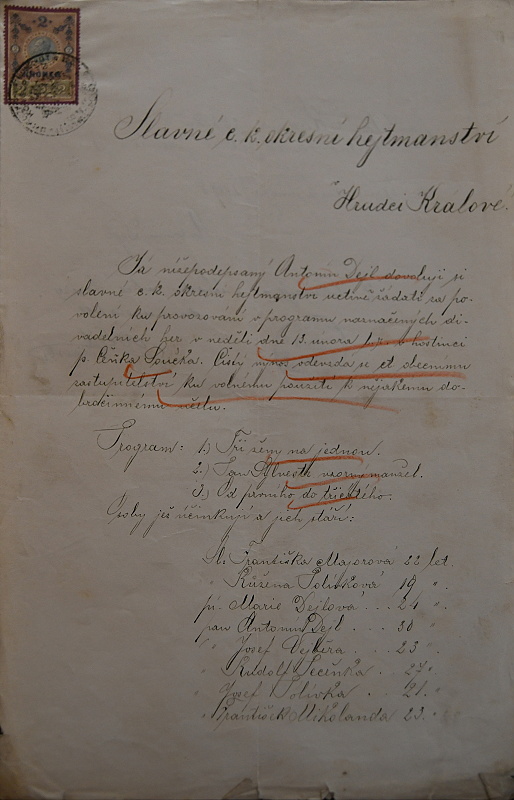 2
Slavné c. k. okresní hejtmanství
Hradci Králové.
Já nížepodepsaný Antonín Dejl dovoluji si
slavné c. k. okresní hejtmanství uctivě žádati za po-
volení ku provozování v programu naznačených di-
vadelních her v neděli dne 13. února v hostinci
p. Čeňka Součka. Čistý výnos odevzdá se ct. obecnímu
zastupitelství ku volnému použití k nějakému do-
bročinnému účelu.
Program: 1.) Tři žen na jednou.
2.) Pan vzorný manžel.
3.) Od prvního do třicátého.
Osoby jež účinkují a jich stáří:
Sl. Františka Majorová 22 let.
" Růžena Polívková 19 ".
pí. Marie Dejlová . . 24 ".
pan Antonín Dejl . . 30 "
" Josef Vejběra . . 23 ".
" Rudolf Pecinka . . 27 ".
" Josef Polívka . . 21. ".
" František Mikolanda 23. "